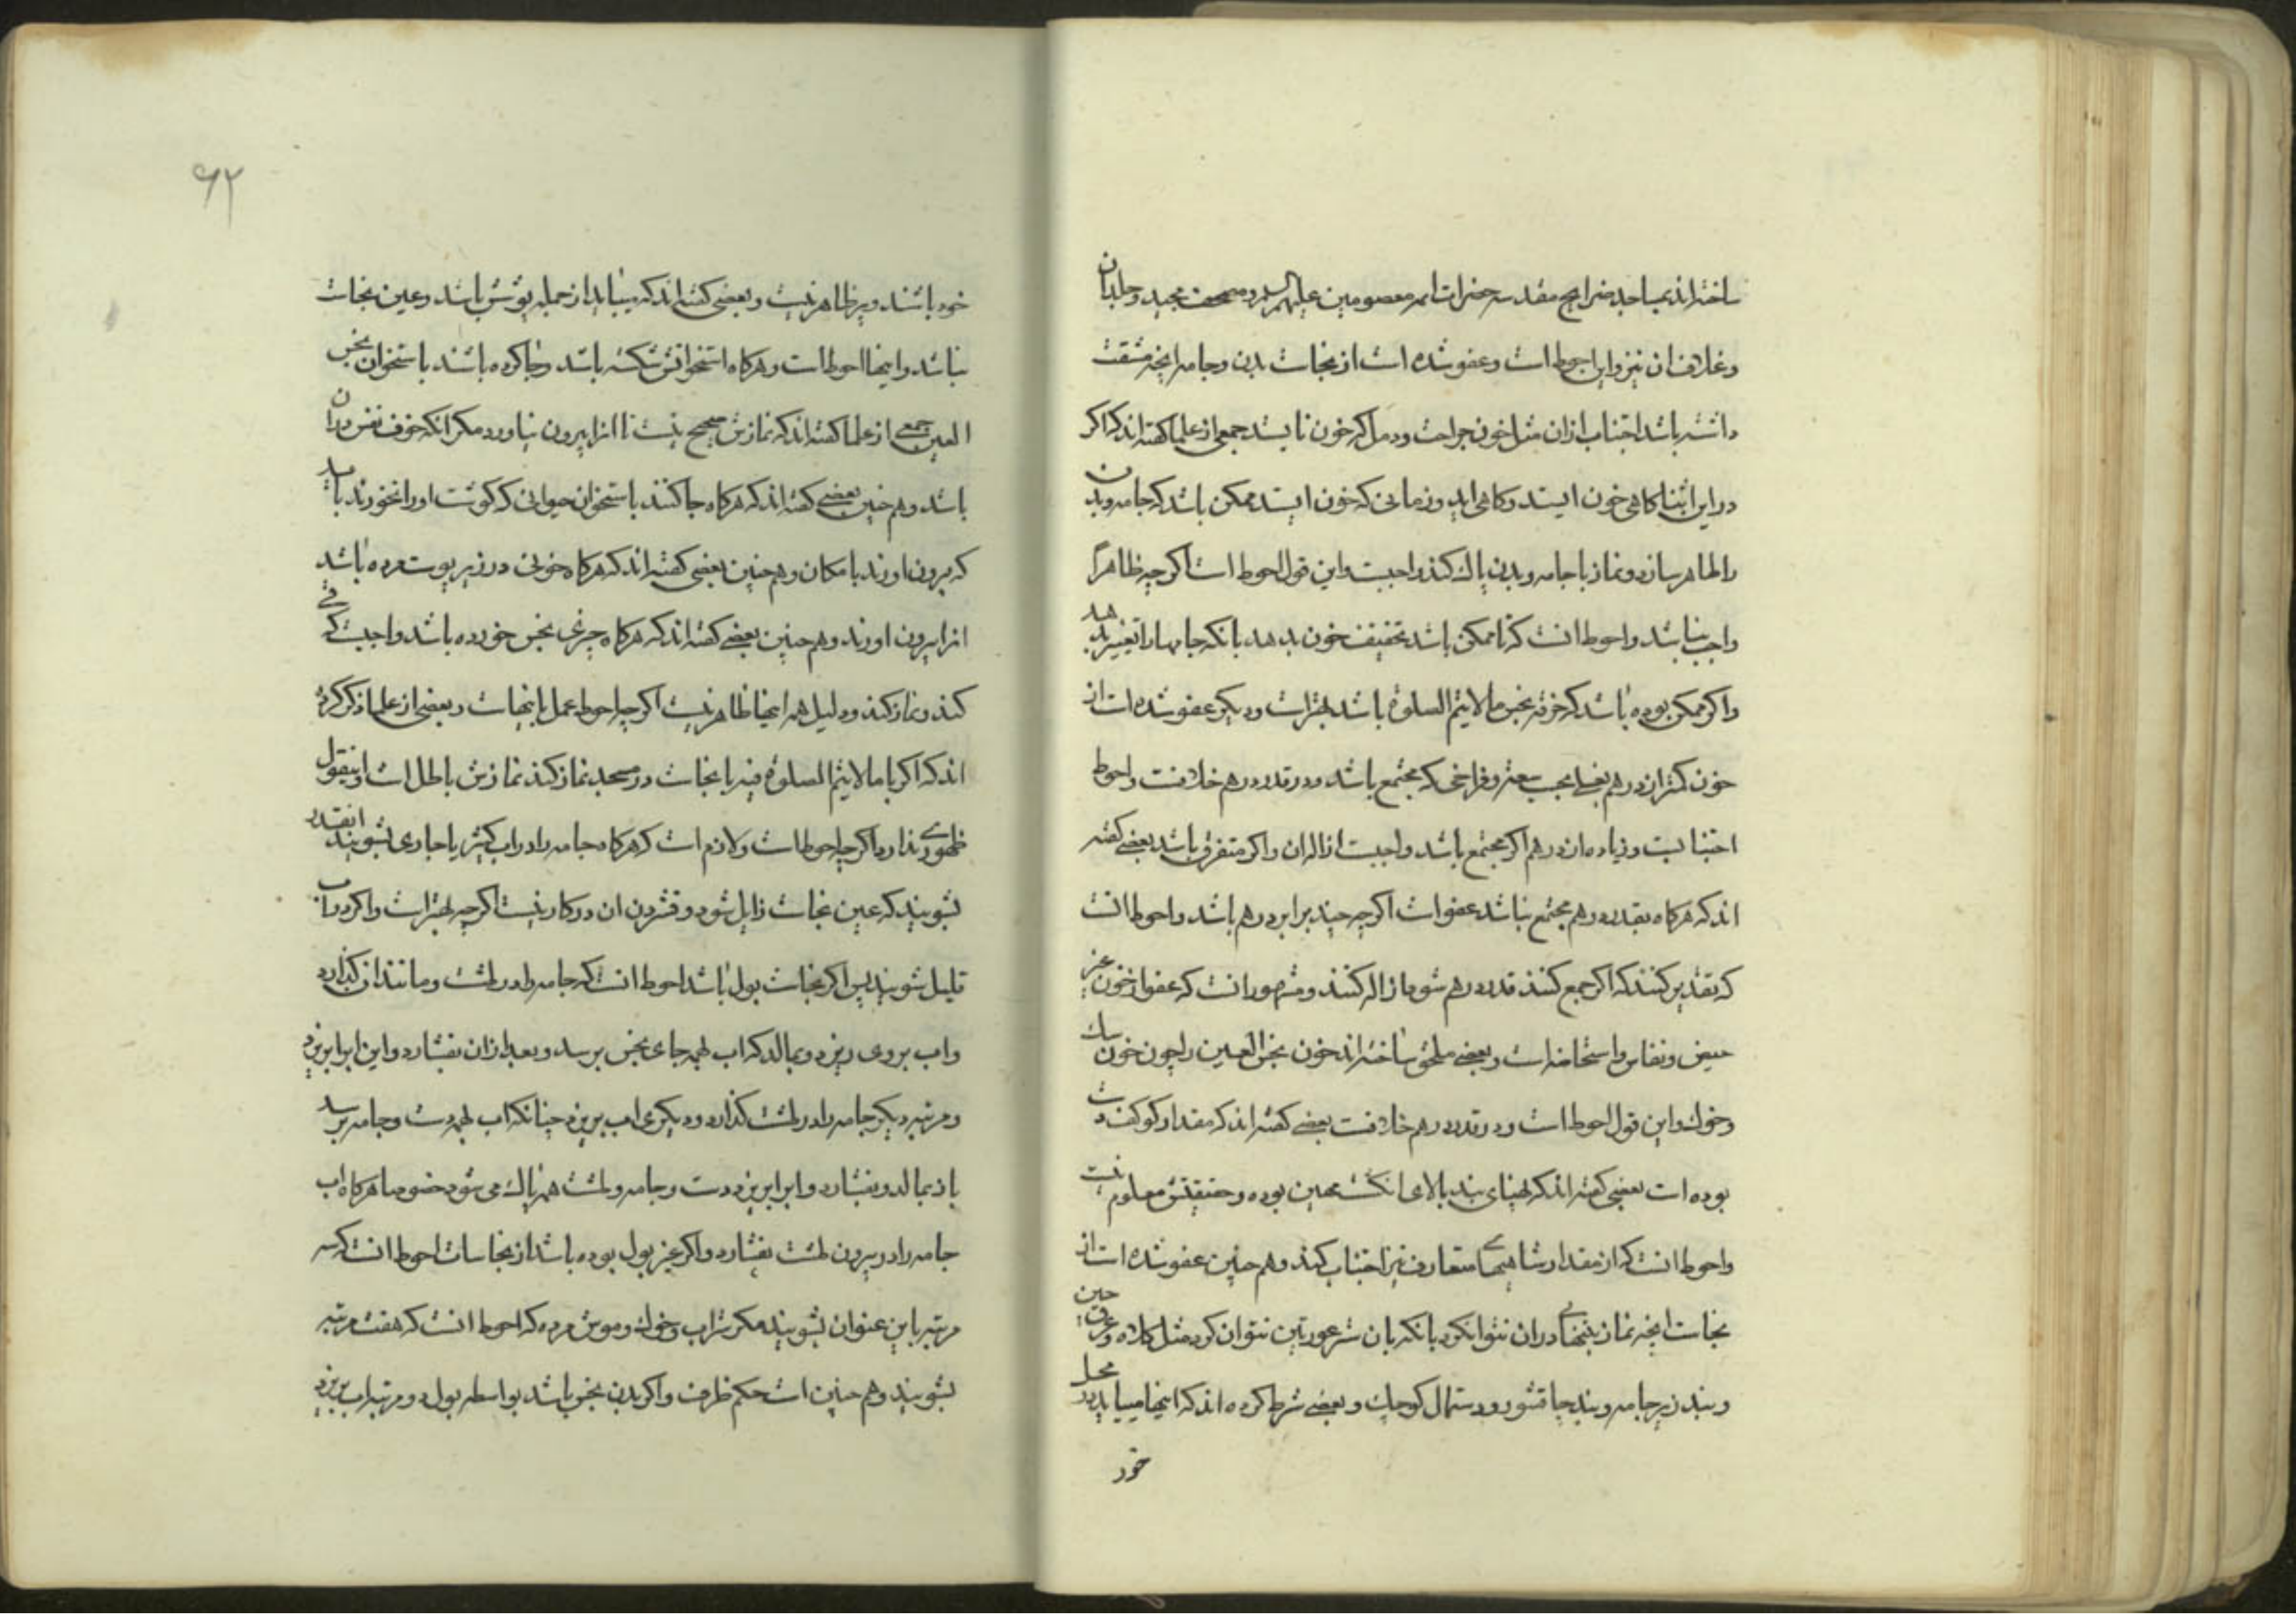 ساخته اند بمساجد ضرایح مقدسه حضرات ائمه معصومین علیهم السلام و مصحف مجید و جلد ان
و غلاف ان نیز و این احوط است و عفو شده است از نجاست بدن و جامه انچه مشقت
داشته باشد اجتناب از ان مثل خون جراحت و دمل که خون نایستد جمعی از علما کفته اند که اکر
در این اثنا کاهی خون ایستد و کاهی اید و زمانی که خون ایستد ممکن باشد که جامه و بدن
را طاهر سازد و نماز با جامه و بدن پاک کند واجبست و این قول احوط است اکر چه ظاهرا
واجب نباشد و احوط انست که تا ممکن باشد تخفیف خون بدهد بانکه جامها را تغییر بدهد
و اکر ممکن بوده باشد که خرقه نجس ما لایتم الصلوة باشد بهتر است و دیکر عفو شده است از
خون کمتر از درهم بغلی بحسب سعة و فراخی که مجتمع باشد و در قدر درهم خلافست و احوط
اجتنابست و زیاده از درهم اکر مجتمع باشد واجبست ازاله ان و اکر متفرق باشد بعضی کفته
اند که هرکاه بقدر درهم مجتمع نباشد عفو است اکر چه چند برابر درهم باشد و احوط انست
که تقدیر کنند که اکر جمع کنند قدر درهم شود ازاله کنند و مشهور انست که عفو از خون غیر
حیض و نفاس و استحاضه است و بعضی ملحق ساخته اند خون نجس العین را چون خون سک
و خوک و این قول احوط است و در قدر درهم خلافست بعضی کفته اند که مقدار کو کف دست
بوده است بعضی کفته اند که بهنای بند بالای انکشت مهین بوده و حقیقتش معلوم نیست
و احوط انست که از مقدار شاهیهای متعارف نیز اجتناب کند و هم چنین عفو شده است از
نجاست انچه نماز بتنهائی در ان نتوانکرد بانکه بان ستر عورتین نتوان کرد مثل کلاه و عرق چین
و بند زیر جامه و بند چاقشور و دستمال کوچک و بعضی شرط کرده اند که اینها میباید در محل
خود
۶۲
خود باشند و بر ظاهر نیست و بعضی کفته اند که میباید از جمله پوشش باشد و عین نجاست
نباشد و اینها احوط است و هرکاه استخوانش شکسته باشد و جا کرده باشند باستخوان نجس
العین جمعی از علما کفته اند که نمازش صحیح نیست تا انرا بیرون نیاورد مکر انکه خوف نفس در ان
باشد و هم چنین بعضی کفته اند که هرکاه جا کنند باستخوان حیوانی که کوشت او را نخورند باید
که بیرون اورند با مکان و هم چنین بعضی کفته اند که هرکاه خونی در زیر پوست مرده باشد
انرا بیرون اورند و هم چنین بعضی کفته اند که هرکاه چیزی نجس خورده باشد واجبست که قی
کند و نماز کند و دلیل همه اینها ظاهر نیست اکر چه احوط عمل باینهاست و بعضی از علما ذکر کرده
اند که اکر با ما لایتم الصلوة فیه با نجاست در مسجد نماز کند نمازش باطل است و اینقول
ظهوری ندارد اکر چه احوط است و لازم است که هرکاه جامه را در اب کثیر یا جاری بشویند انقدر
بشویند که عین نجاست زایل شود و فشردن ان در کار نیست اکر چه بهتر است و اکر در اب
قلیل شویند پس اکر نجاست بول باشد احوط انست که جامه را در طشت و مانند ان کذارد
و اب بر وی ریزد و بمالد که اب بهمه جای نجس برسد و بعد از ان بفشارد و این اب را بریزد
و مرتبه دیکر جامه را در طشت کذارد و دیکری اب بریزد چنانکه اب بهمه دست و جامه برسد
باز بمالد و بفشارد و اب را بریزد دست و جامه و طشت همه پاک می شود خصوصا هرکاه اب
جامه را در بیرون طشت بفشارد و اکر غیر بول بوده باشد از نجاسات احوط انست که سه
مرتبه باین عنوان بشویند مکر شراب و خوک و موش مرده که احوط انست که هفت مرتبه
بشویند و هم چنین است حکم ظرف و اکر بدن نجس باشد بواسطه بول دو مرتبه اب بریزد